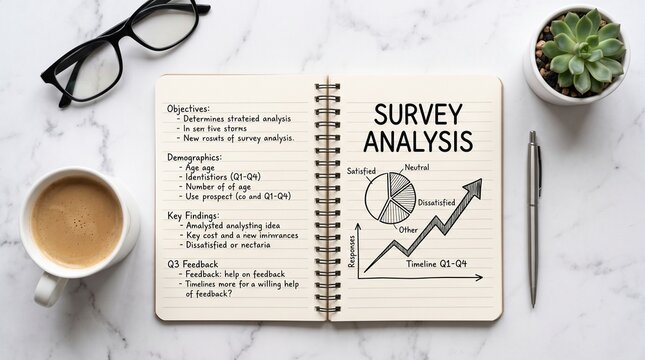 Objectives:
- Determines strateied analysis
- In sen tive storms
- New rosuts of survey analysis.
Demographics:
- Age age
- Identistiors (Q1-Q4)
- Number of of age
- Use prospect (co and Q1-Q4)
Key Findings:
- Amalysted analysting idea
- Key cost and a new imnrrances
- Dissatisfied or nectaria
Q3 Feedback
- Feedback: help on feedback
- Timelines more for a willing help
of feedback?
SURVEY
ANALYSIS
Satisfied
Neutral
Dissatisfied
Other
Responses
Timeline Q1-Q4